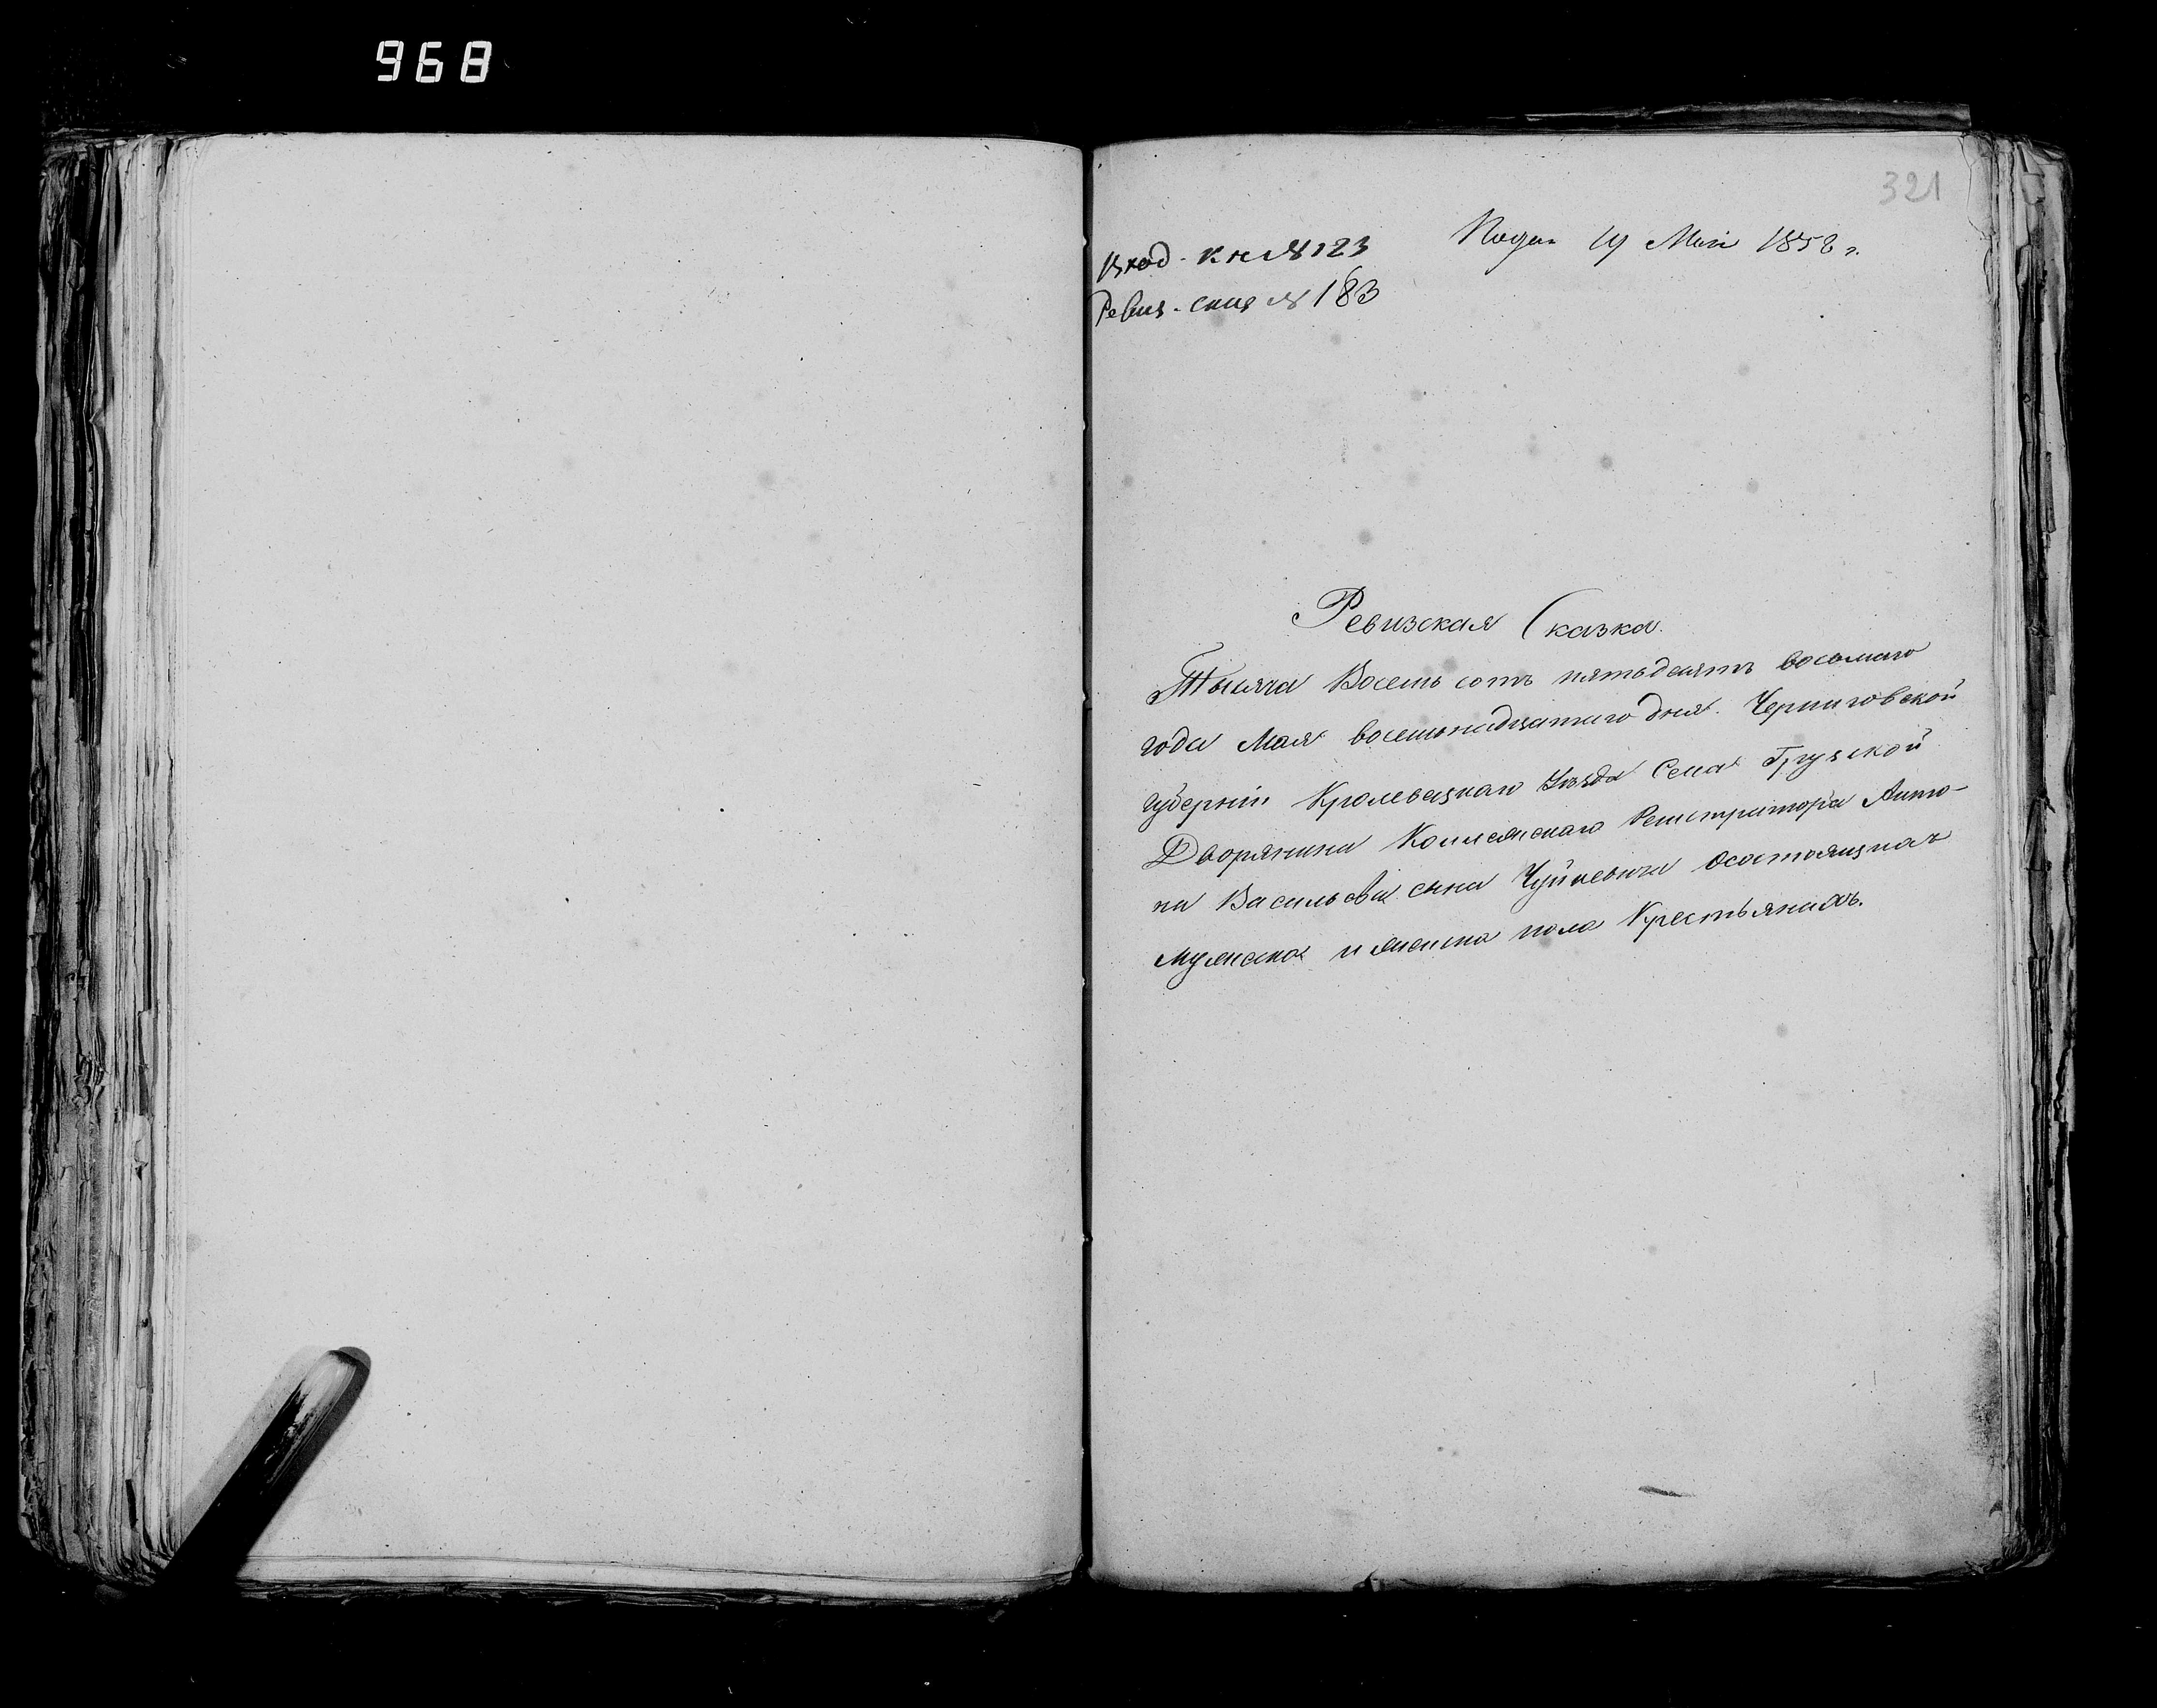 968
321
Вход. кн № 123
Подан 19 Мая 1858 г.
Ревиз. скaз № 183
Ревизская Сказка.
Тысяча Восемь сотъ пятьдесятъ восьмаго
года Мая восемнадцатаго дня. Черниговской
губерніи Кролевецкаго Уѣзда Села Грузской
Дворянина Коллежскаго Регистратора Анто-
на Васильева сына Чуйкевича
мужеска и женска пола Крестьянахъ.